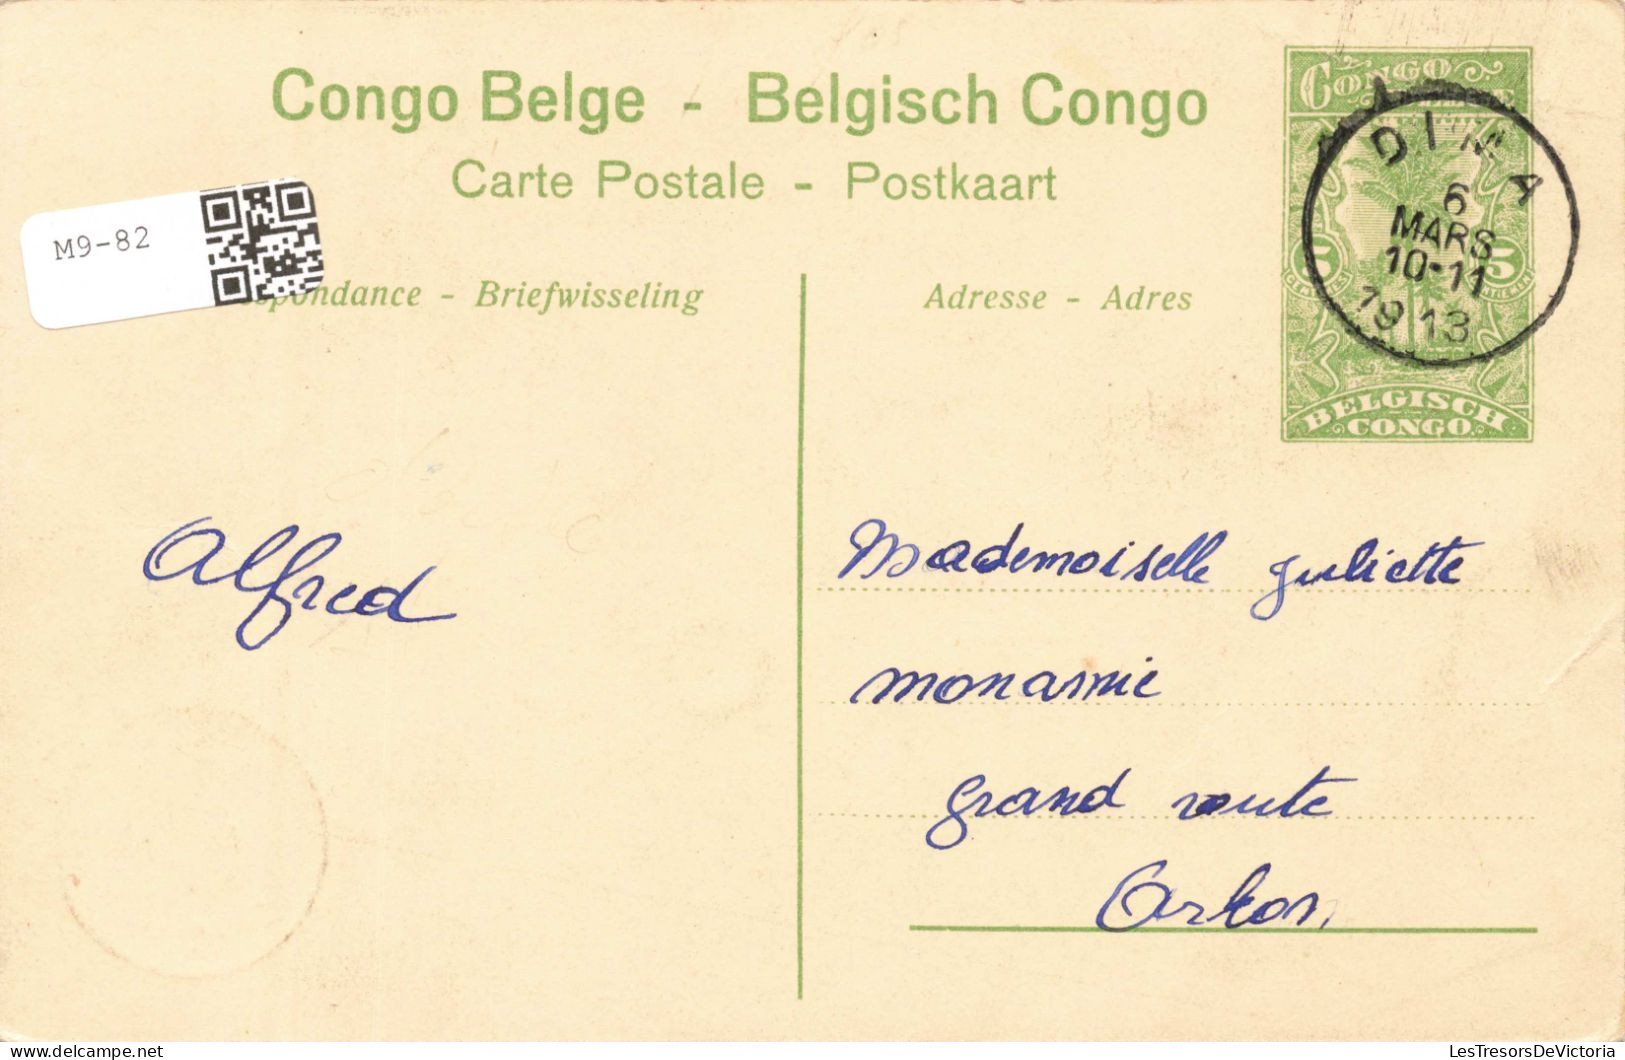 Congo Belge - Belgisch Congo
Carte Postale - Postkaart
M9-82
spondance - Briefwisseling
Adresse - Adres
CONGO BELGE
5 5
BELGISCH
CONGO
DIMA
6
MARS
10-11
1913
Alfred
Mademoiselle juliette
monamie
grand route
Arlon
LesTresorsDeVictoria